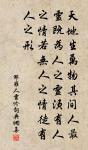 天地生萬物其間人最
靈既為人之靈須有人
之情若無人之情徒有
人之形
邵雍人靈吟